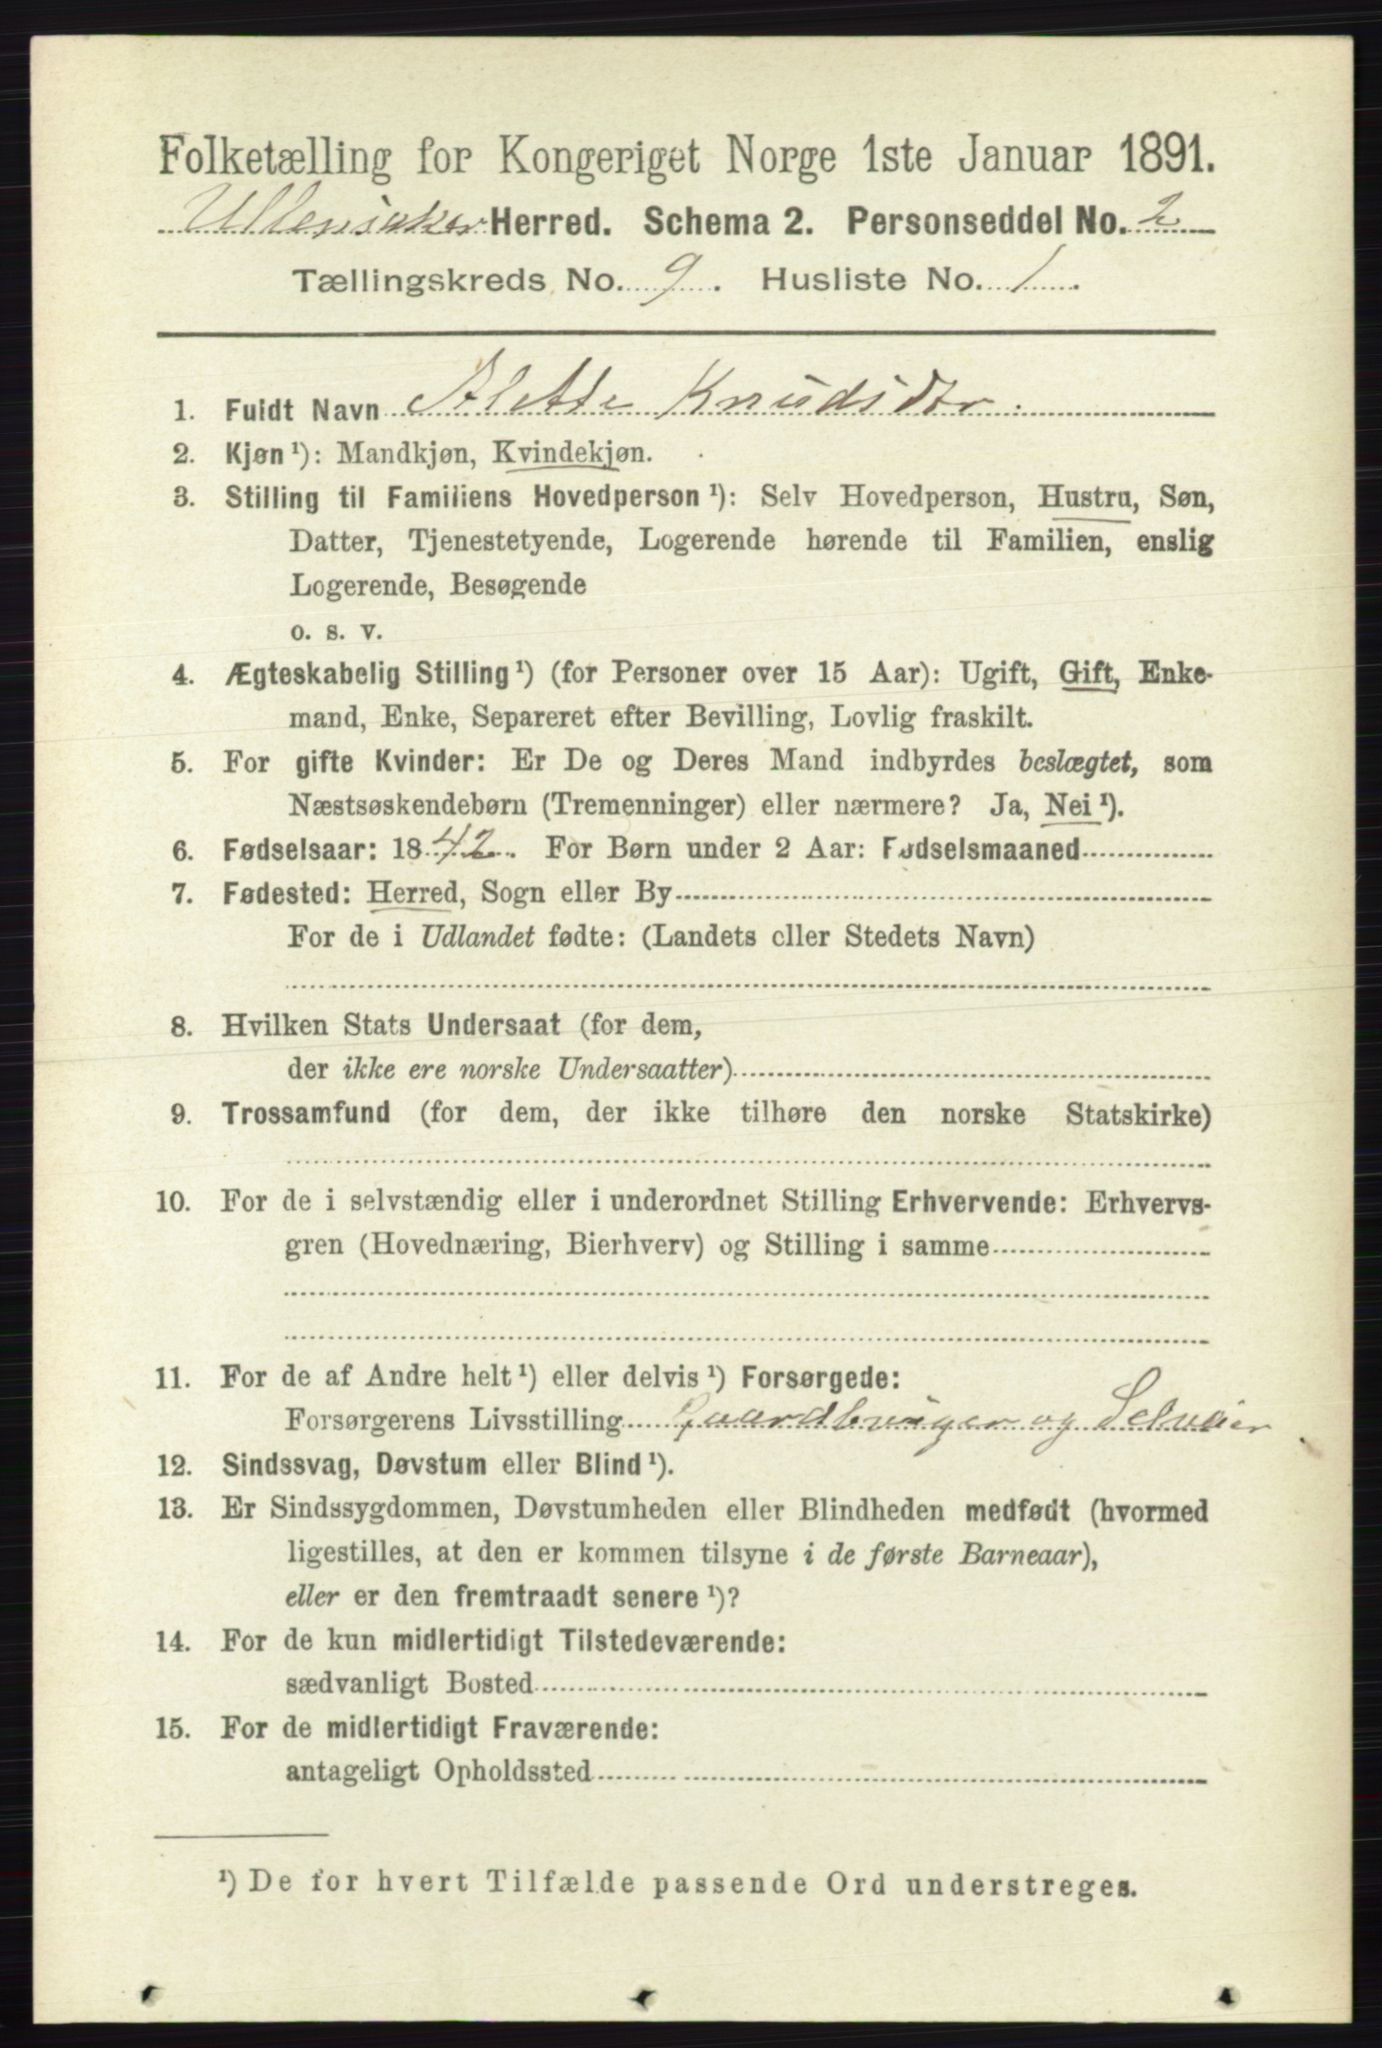 Folketælling for Kongeriget Norge 1ste Januar 1891.
Ullensaker Herred. Schema 2. Personseddel No. 2
Tællingskreds No. 9. Husliste No. 1.
1. Fuldt Navn Alette Knudsdtr.
2. Kjøn ¹): Mandkjøn, Kvindekjøn.
3. Stilling til Familiens Hovedperson ¹): Selv Hovedperson, Hustru, Søn,
Datter, Tjenestetyende, Logerende hørende til Familien, enslig
Logerende, Besøgende
o. s. v.
4. Ægteskabelig Stilling ¹) (for Personer over 15 Aar): Ugift, Gift, Enke-
mand, Enke, Separeret efter Bevilling, Lovlig fraskilt.
5. For gifte Kvinder: Er De og Deres Mand indbyrdes beslægtet, som
Næstsøskendebørn (Tremenninger) eller nærmere? Ja, Nei ¹).
6. Fødselsaar: 1842. For Børn under 2 Aar: Fødselsmaaned
7. Fødested: Herred, Sogn eller By
For de i Udlandet fødte: (Landets eller Stedets Navn)
8. Hvilken Stats Undersaat (for dem,
der ikke ere norske Undersaatter)
9. Trossamfund (for dem, der ikke tilhøre den norske Statskirke)
10. For de i selvstændig eller i underordnet Stilling Erhvervende: Erhvervs-
gren (Hovednæring, Bierhverv) og Stilling i samme
11. For de af Andre helt ¹) eller delvis ¹) Forsørgede:
Forsørgerens Livsstilling Gaardbruger og Selveier
12. Sindssvag, Døvstum eller Blind ¹).
13. Er Sindssygdommen, Døvstumheden eller Blindheden medfødt (hvormed
ligestilles, at den er kommen tilsyne i de første Barneaar),
eller er den fremtraadt senere ¹)?
14. For de kun midlertidigt Tilstedeværende:
sædvanligt Bosted
15. For de midlertidigt Fraværende:
antageligt Opholdssted
¹) De for hvert Tilfælde passende Ord understreges.